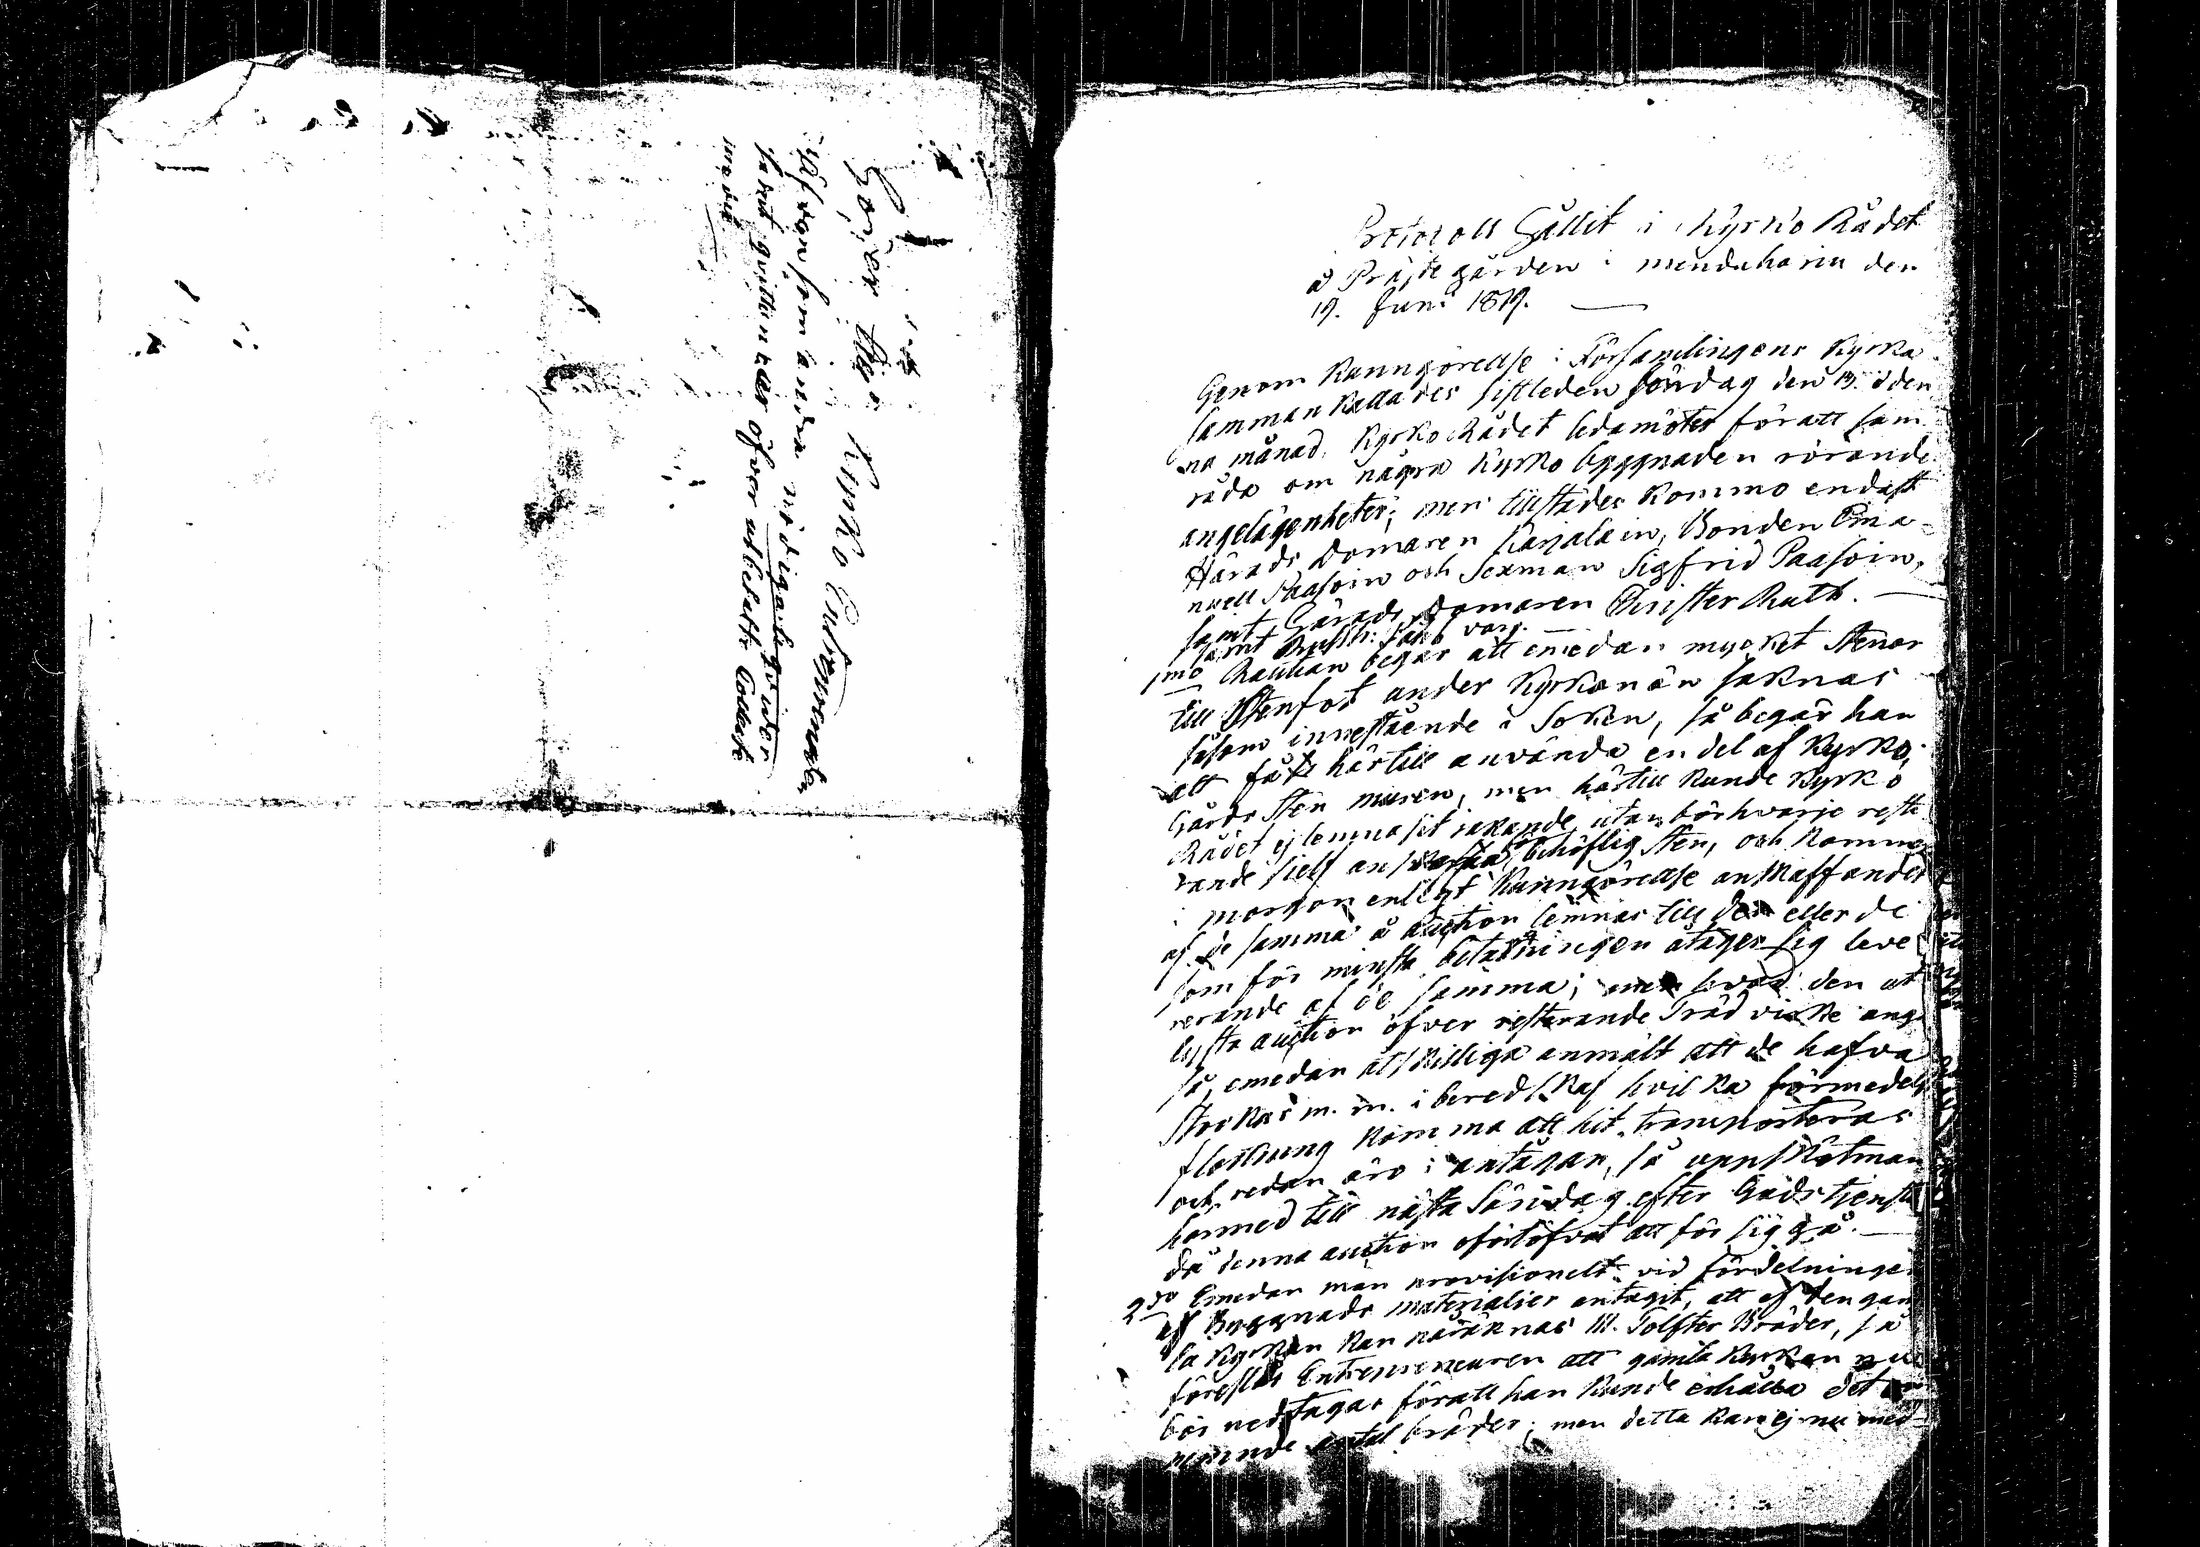 Kyrko Entreprenad
Hvaröfver som andra nödiga qvitton
samt qvittencer öfver utbetalte Collect
medel
Protocoll hållit i Kyrko Rådet
å Prästegården i menduharju den
19. Juni 1819.
Genom Kunngörelse i Församlingens Kyrka
samman kallades sistleden söndag den 13. i den
na månad, Kyrko Rådet ledamöter för att sam
råda om några Kyrko byggnaden rörande
angelägenheter; men tillstädes kommo endast
Härads Domaren Karjalain, Bonden Ema-
nuell Paasoin och Sexman Sigfrid Paasoin,
samt Härads Domaren Christer Rutk.
samt Jakob
1mo Rautian begär att emedan mycket stenar
till Stenfot under Kyrkan än saknas
såsom innestående i Soken, så begär han
att få härtill använda en del af Kyrko-
Gårds Sten muren, men härtill kunde Kyrko
Rådet ej lemna sit jakande utan bör hvarje reste
rande sielf anskaffa behöflig sten, och kommer
i morgon enligt Kunngörelse anskaffandet
af de samma å auction lemnas till den eller de
som för minsta betalningen åtager sig leve
rerande af de samma; men hvad den ut
lysta auction öfver resterande Träd virke angå
så, emedan åtskilliga anmält att de hafva
Stockar m. m. i beredskap hvilka förmedelst
flottning komma att hit transporteras
och redan äro i antågan, så uppskötman
härmed till nästa Söndag efter Gudstjensten
då denna auction oförtöfvat att för sig gå.
2do Emedan man provisionelt vid fördelningen
af Byggnads materialier antagit, att af den gam
la Kyrkan kan påräknas 111. Tolfter Bräder, så
föreslår Entrepreneuren att gamla Kyrkan nu
bör nedtagas för att han kunde erhålla det
nämnde antal bräder; men detta kan ej nu med-